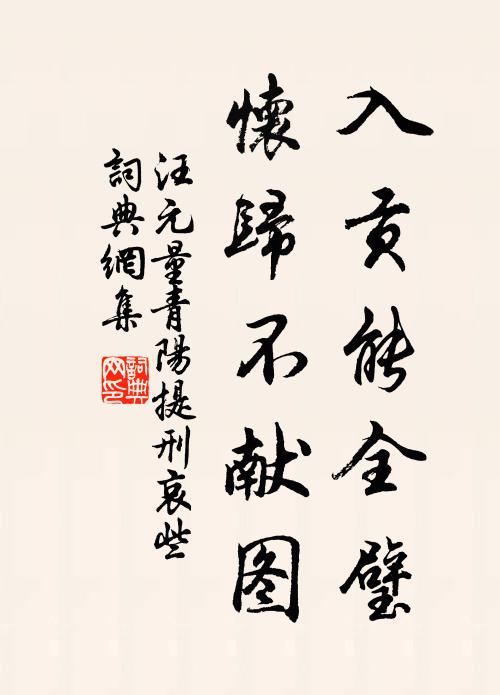 入贡能全璧
懷歸不献图
汪元量青陽提刑哀些
詞典網集
詞典网印